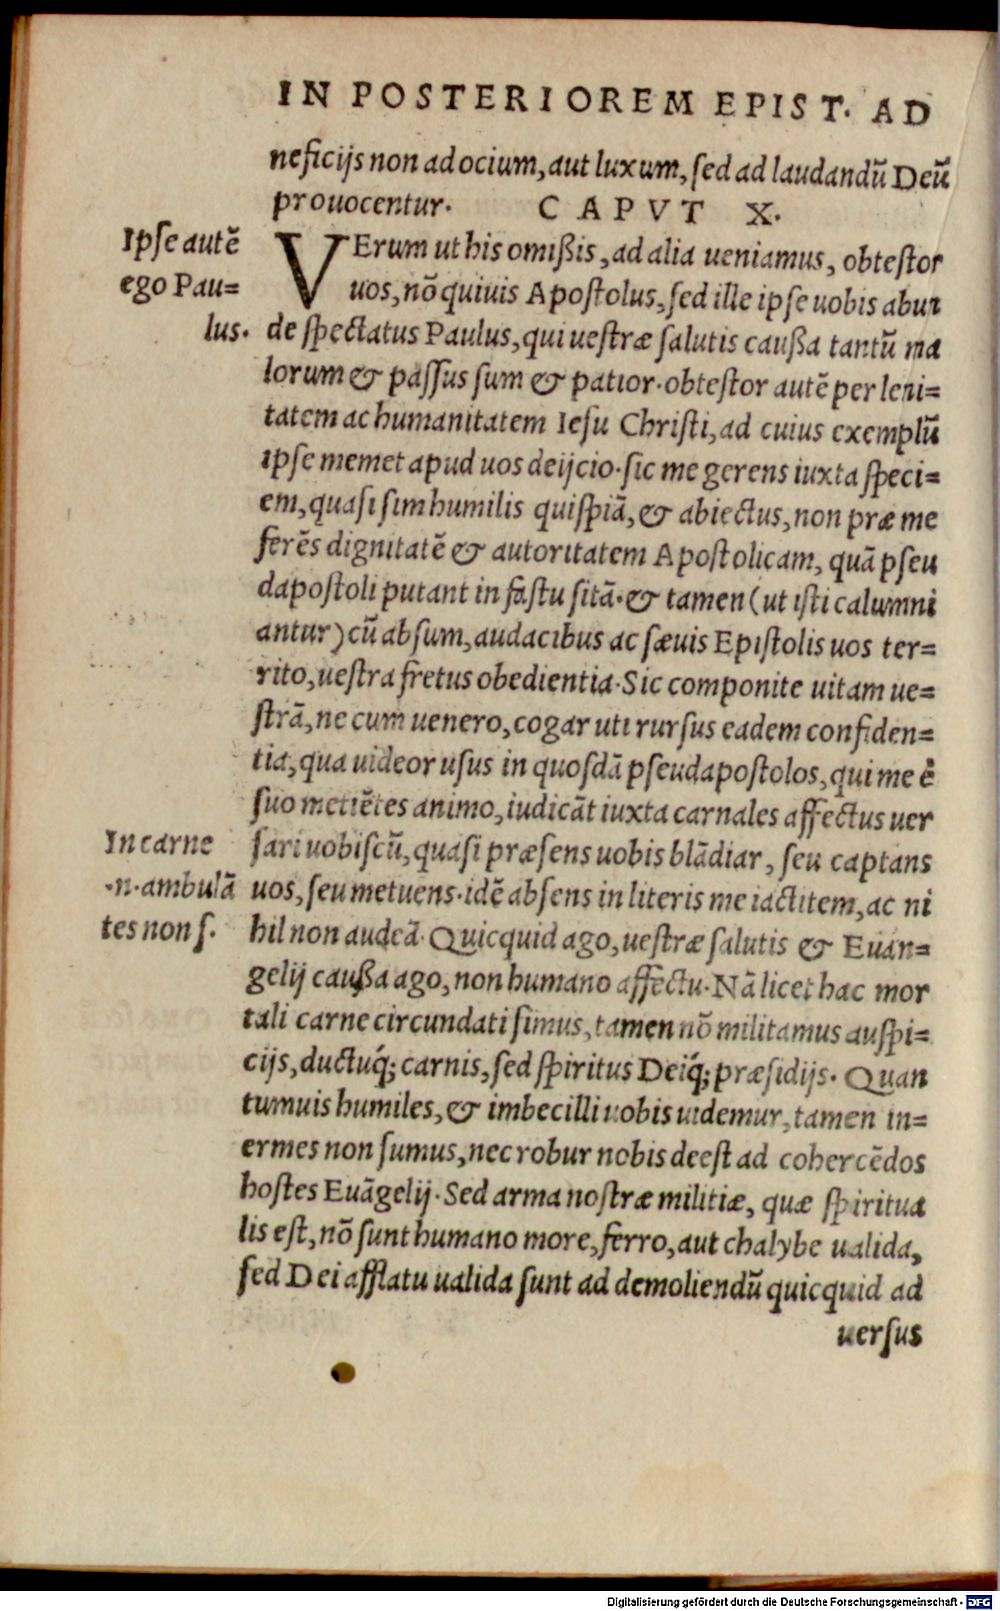 IN POSTERIOREM EPIST. AD
neficijs non ad ocium, aut luxum, ſed ad laudandū Deū
prouocentur. CAPVT X.
Ipſe autē
ego Pau=
lus.
VErum ut his omißis, ad alia ueniamus, obteſtor
uos, nō quiuis Apoſtolus, ſed ille ipſe uobis abun
de ſpectatus Paulus, qui ueſtræ ſalutis cauſſa tantū ma
lorum & paſſus ſum & patior. obteſtor autē per leni=
tatem ac humanitatem Ieſu Chriſti, ad cuius exemplū
ipſe memet apud uos deijcio. ſic me gerens iuxta ſpeci=
em, quaſi ſim humilis quiſpiā, & abiectus, non præ me
ferēs dignitatē & autoritatem Apoſtolicam, quā pſeu
dapoſtoli putant in faſtu ſitā. & tamen (ut iſti calumni
antur) cū abſum, audacibus ac ſæuis Epiſtolis uos ter=
rito, ueſtra fretus obedientia. Sic componite uitam ue=
ſtrā, ne cum uenero, cogar uti rurſus eadem confiden=
tia, qua uideor uſus in quoſdā pſeudapoſtolos, qui me è
ſuo metiētes animo, iudicāt iuxta carnales affectus uer
ſari uobiſcū, quaſi præſens uobis blādiar, ſeu captans
uos, ſeu metuens. idē abſens in literis me iactitem, ac ni
hil non audeā. Quicquid ago, ueſtræ ſalutis & Euan=
gelij caußa ago, non humano affectu. Nā licet hac mor
tali carne circundati ſimus, tamen nō militamus auſpi=
cijs, ductuq́; carnis, ſed ſpiritus Deiq́; præſidijs. Quan
tumuis humiles, & imbecilli uobis uidemur, tamen in=
ermes non ſumus, nec robur nobis deeſt ad cohercēdos
hoſtes Euāgelij. Sed arma noſtræ militiæ, quæ ſpiritua
lis eſt, nō ſunt humano more, ferro, aut chalybe ualida,
ſed Dei afflatu ualida ſunt ad demoliendū quicquid ad
uerſus
In carne
.n. ambulā
tes non ſ.
Digitalisierung gefördert durch die Deutsche Forschungsgemeinschaft - DFG